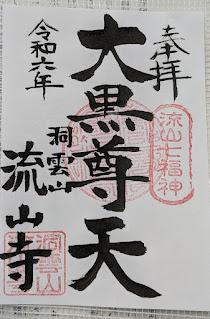 奉拝
流山七福神
大黒尊天
洞雲山
流山寺
令和六年